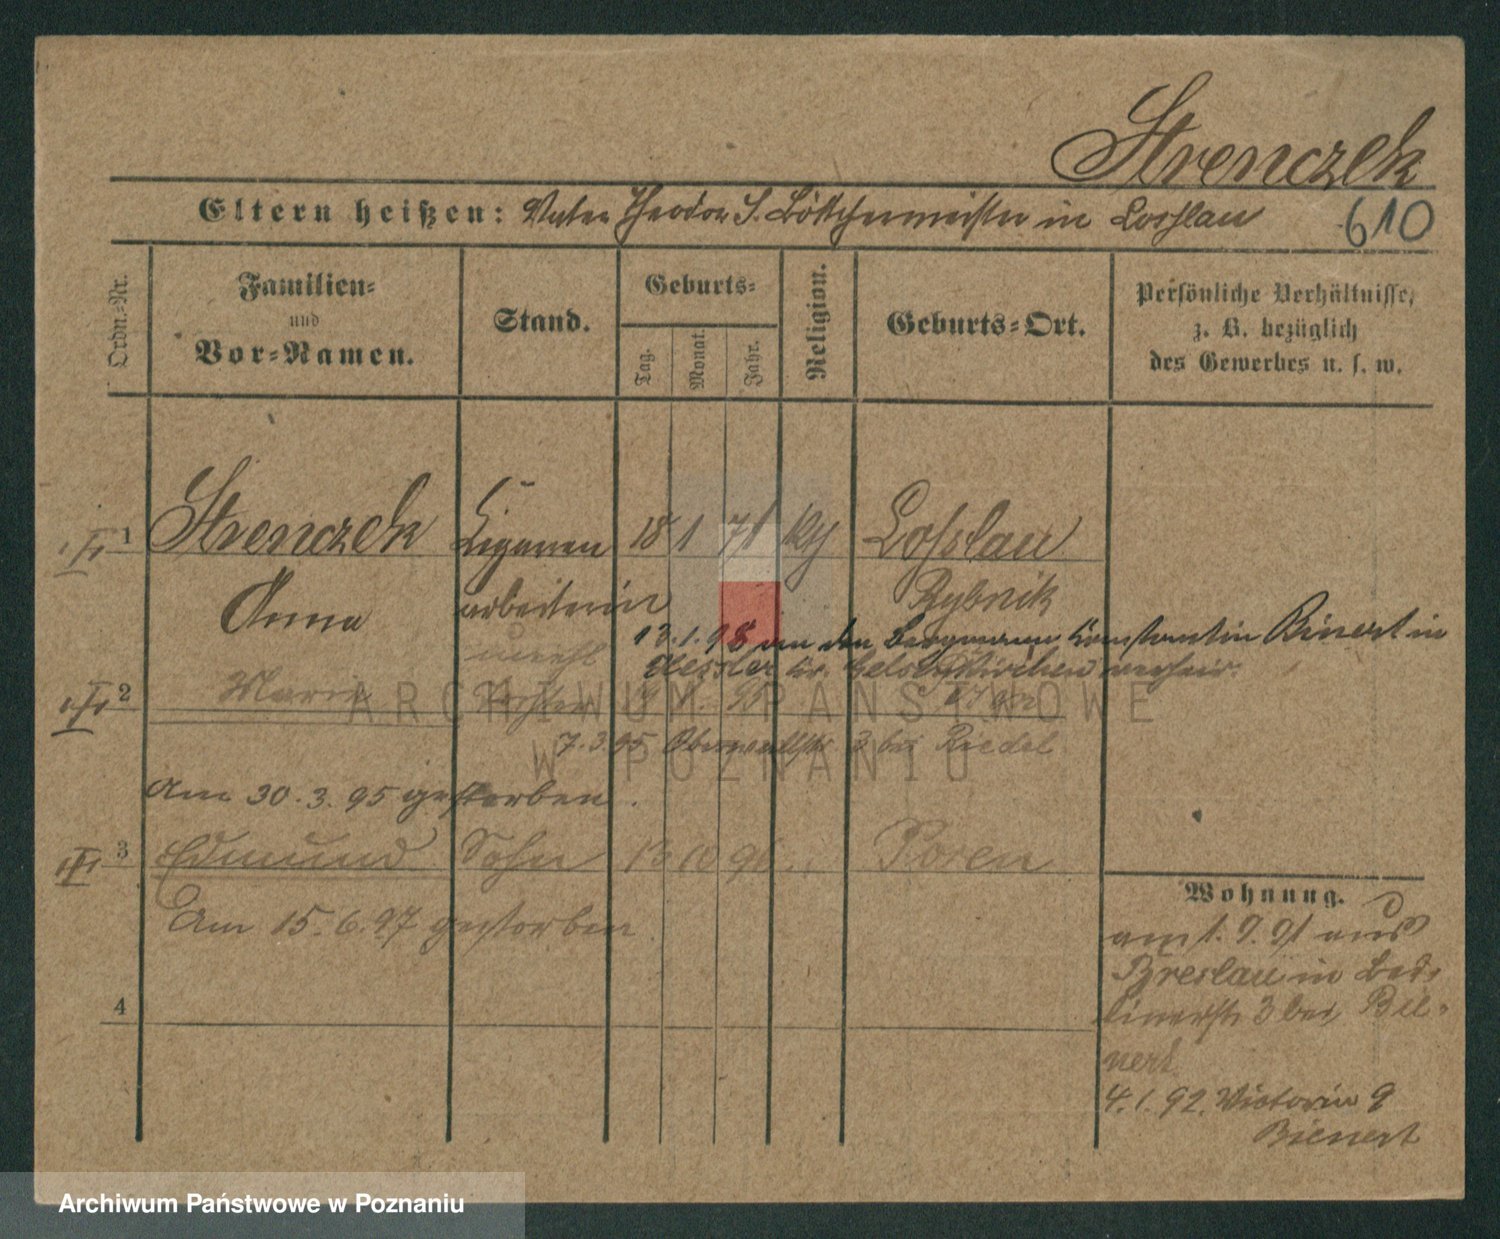 Strenczek
Eltern heißen: Vater Theodor S. Böttchermeister in Loslau
610
Ordn.-Nr.
Familien-
und
Vor-Namen.
Stand.
Geburts-
Tag.
Monat.
Jahr.
Religion.
Geburts-Ort.
Persönliche Verhältnisse,
z. B. bezüglich
des Gewerbes u. s. w.
1 Strenczek Cigarren 18 1 71 Loslau
Anna arbeiterin Rybnik
13.1.98 an den Bergmann Konstantin Binert in
Gelsenkirchen
unehl
2 Marie Tochter
7.3.95 3 bei Riedel
Am 30.3.95 gestorben.
3 Edmund Sohn 13 10 96 Posen
Am 15.6.97 gestorben
4
Wohnung.
am 1.9.91 aus
Breslau in
3 bei Bie-
nert
4.1.92. Victoria 9
Bienert
ARCHIWUM PAŃSTWOWE
W POZNANIU
Archiwum Państwowe w Poznaniu